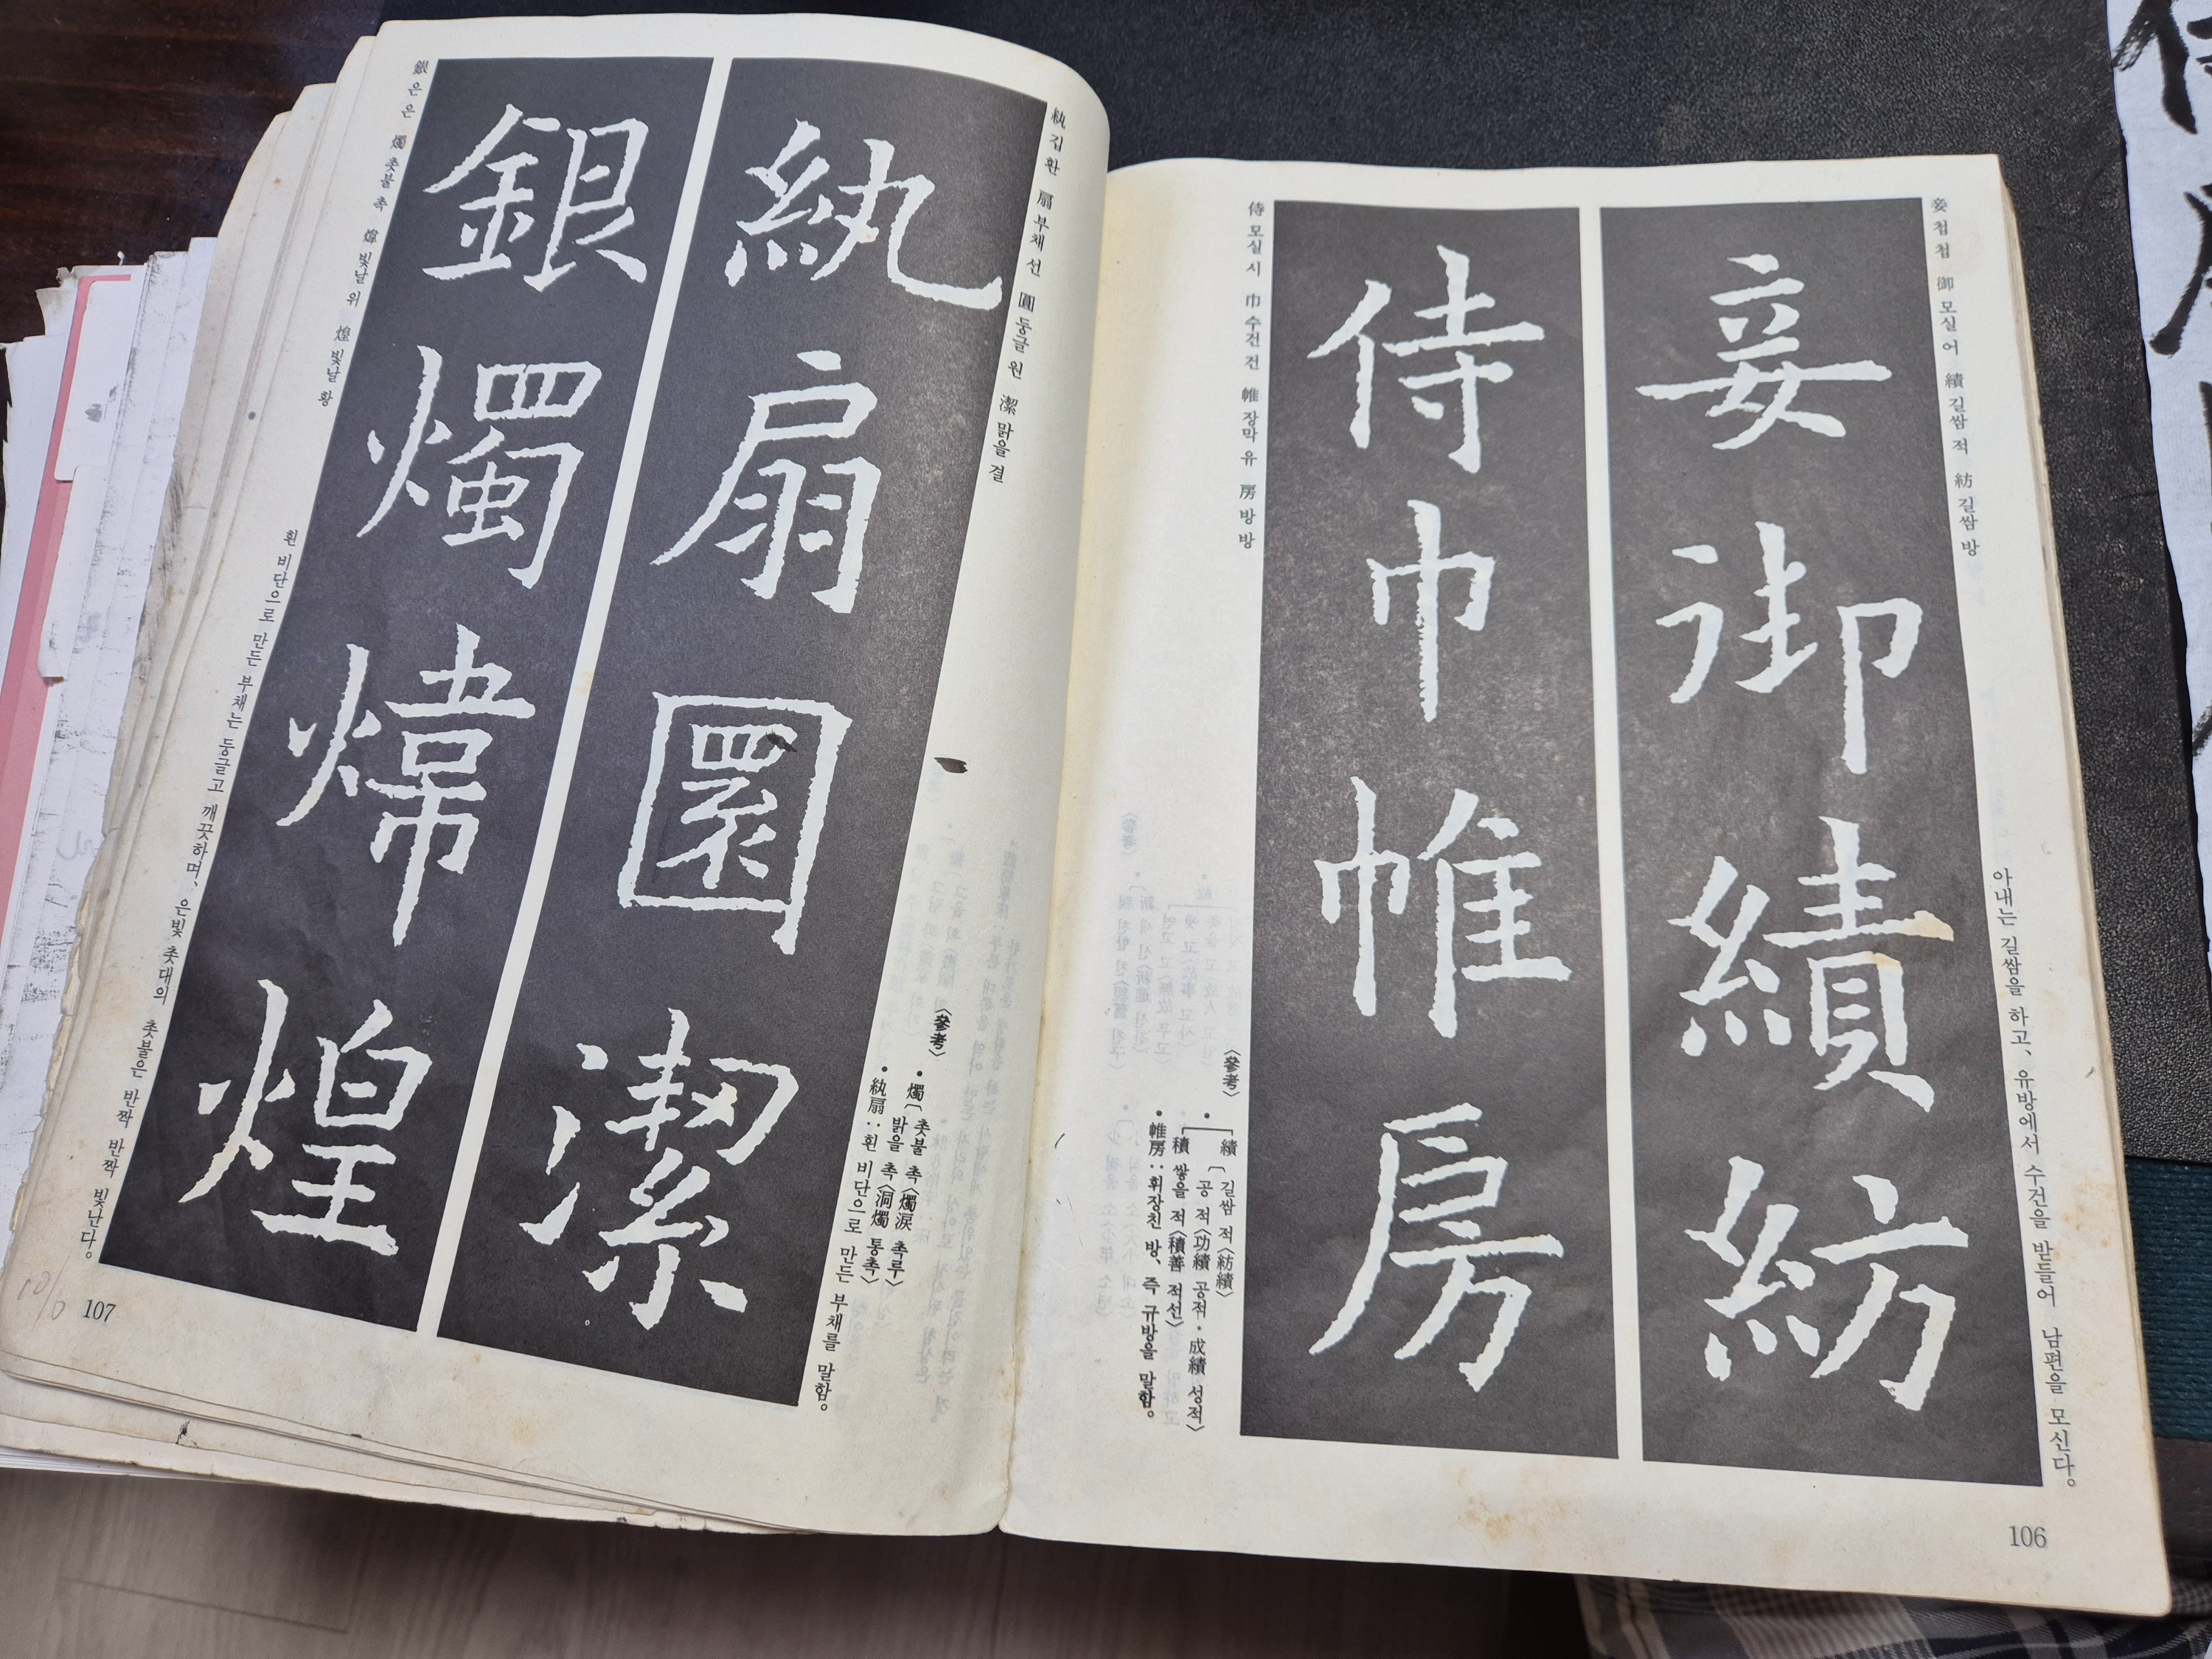 妾 첩 첩 御 모실 어 績 길쌈 적 紡 길쌈 방
妾御績紡
아내는 길쌈을 하고, 유방에서 수건을 받들어 남편을 모신다。
侍巾帷房
侍 모실 시 巾 수건 건 帷 장막 유 房 방 방
〈參考〉
• 績 〔 길쌈 적〈紡績〉
공 적〈功績 공적·成績 성적〉
積 쌓을 적〈積善 적선〉
• 帷房 : 휘장친 방、 즉 규방을 말함。
106
紈 깁 환 扇 부채 선 圓 둥글 원 潔 맑을 결
紈扇圓潔
〈參考〉
• 燭〔 촛불 촉〈燭淚 촉루〉
밝을 촉〈洞燭 통촉〉
• 紈扇 : 흰 비단으로 만든 부채를 말함。
銀燭煒煌
銀 은 은 燭 촛불 촉 煒 빛날 위 煌 빛날 황
흰 비단으로 만든 부채는 둥글고 깨끗하며、 은빛 촛대의 촛불은 반짝 반짝 빛난다。
107